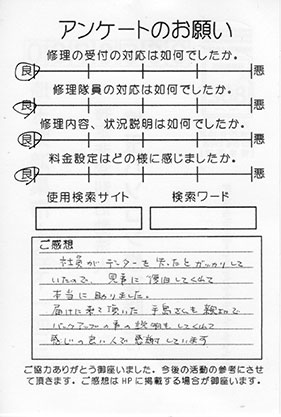 アンケートのお願い
修理の受付の対応は如何でしたか。
良 悪
修理隊員の対応は如何でしたか。
良 悪
修理内容、状況説明は如何でしたか。
良 悪
料金設定はどの様に感じましたか。
良 悪
使用検索サイト 検索ワード
ご感想
社員がデータを失ったとガッカリして
いたので、見事に復旧してくれて
本当に助りました。
届けに来て頂いた手島さんも親切で
バックアップの事の説明もしてくれて
感じの良い人で感謝しています
ご協力ありがとう御座いました。今後の活動の参考にさせ
て頂きます。ご感想はHPに掲載する場合が御座います。